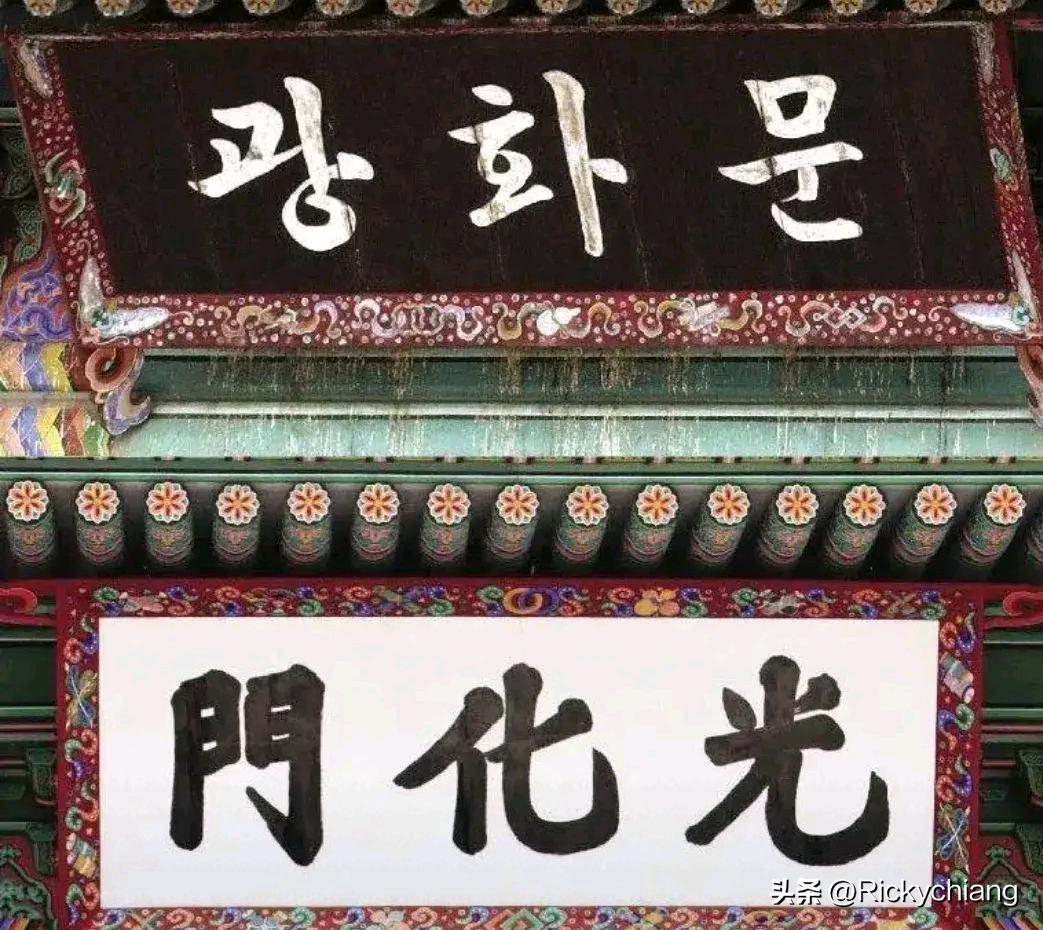 광화문
光化門
头条 @Rickychiang